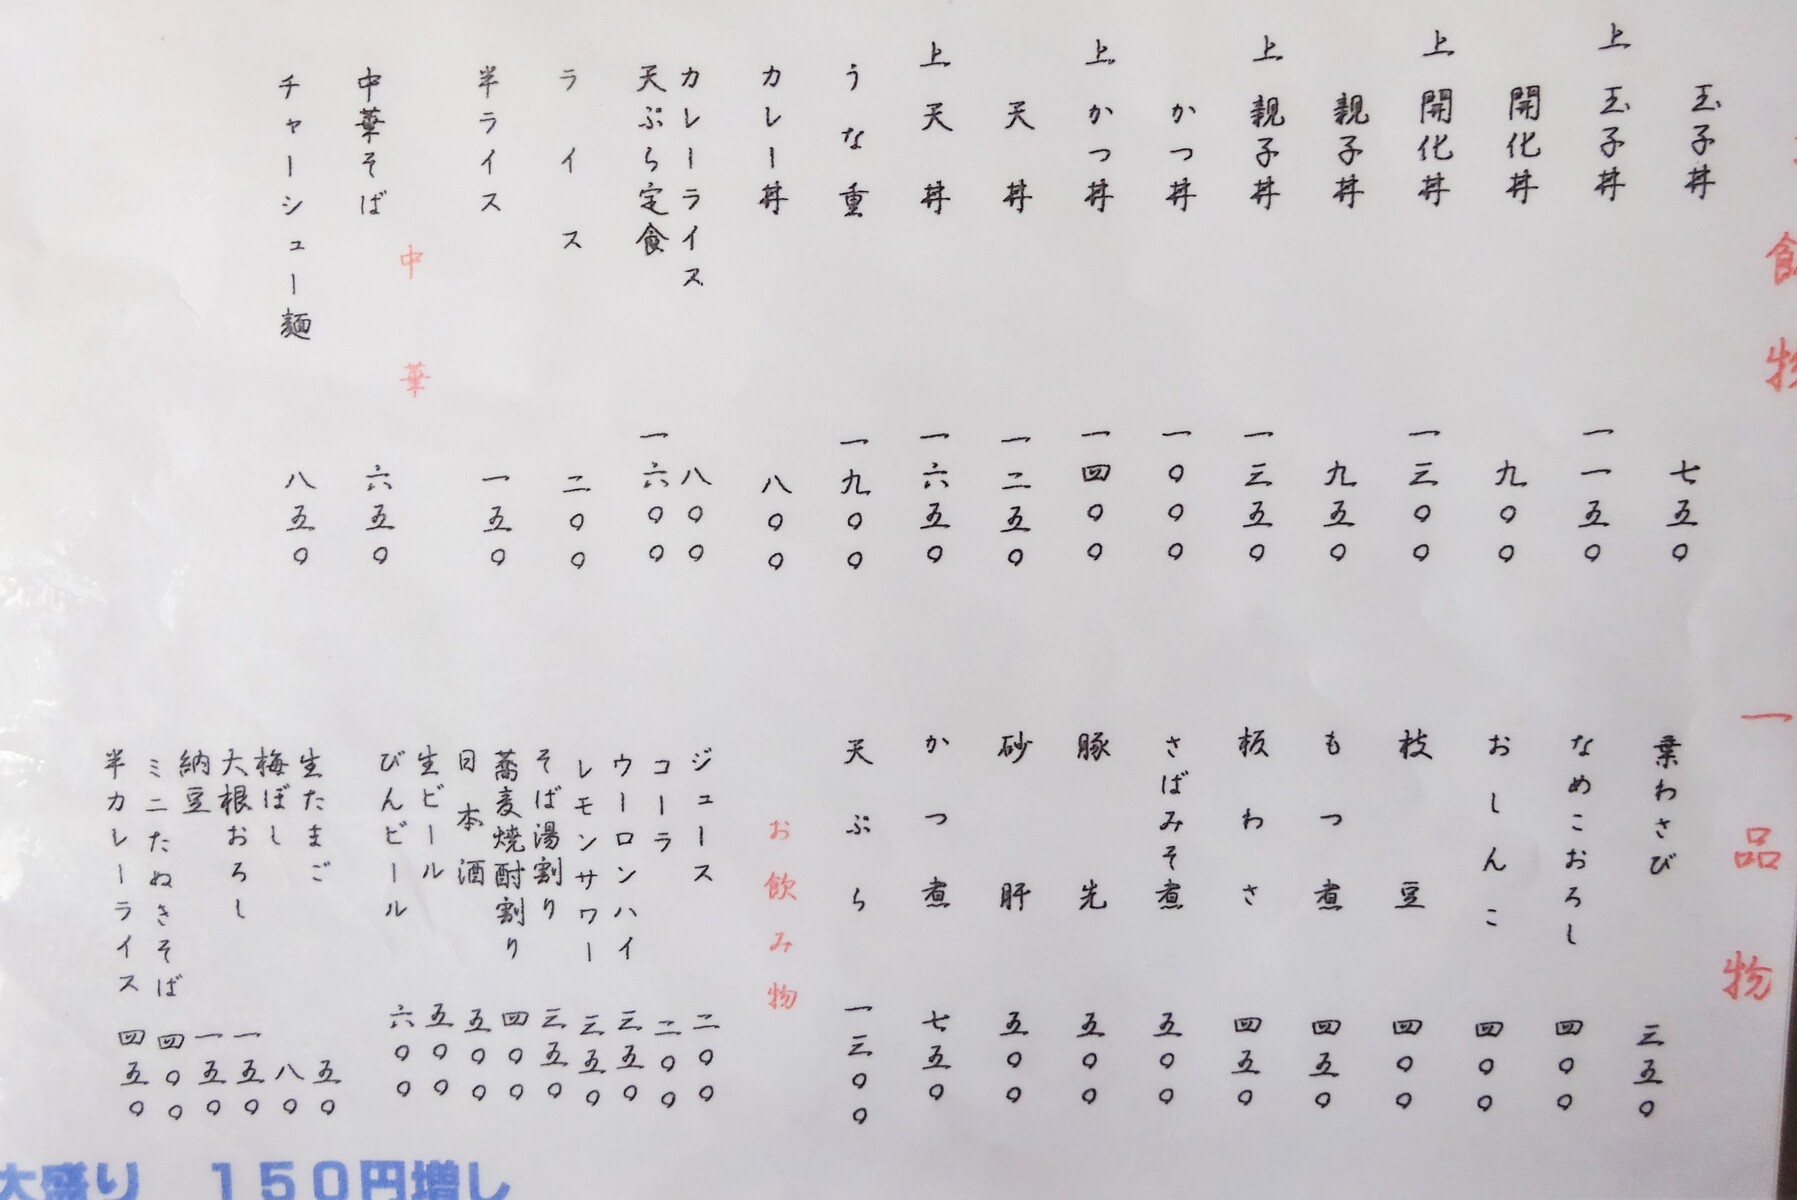 飯物
玉子丼 七五〇
上玉子丼 一一五〇
開化丼 九〇〇
上開化丼 一三〇〇
親子丼 九五〇
上親子丼 一三五〇
かつ丼 一〇〇〇
上かつ丼 一四〇〇
天丼 一二五〇
上天丼 一六五〇
うな重 一九〇〇
カレー丼 八〇〇
カレーライス 八〇〇
天ぷら定食 一六〇〇
ライス 二〇〇
半ライス 一五〇
中華
中華そば 六五〇
チャーシュー麺 八五〇
一品物
葉わさび 三五〇
なめこおろし 四〇〇
おしんこ 四〇〇
枝豆 四〇〇
もつ煮 四五〇
板わさ 四五〇
さばみそ煮 五〇〇
豚先 五〇〇
砂肝 五〇〇
かつ煮 七五〇
天ぷら 一三〇〇
お飲み物
ジュース 二〇〇
コーラ 二〇〇
ウーロンハイ 三五〇
レモンサワー 三五〇
そば湯割り 三五〇
蕎麦焼酎割り 四〇〇
日本酒 五〇〇
生ビール 五〇〇
びんビール 六〇〇
生たまご 五〇
梅ぼし 八〇
大根おろし 一五〇
納豆 一五〇
ミニたぬきそば 四〇〇
半カレーライス 四五〇
大盛り 150円増し